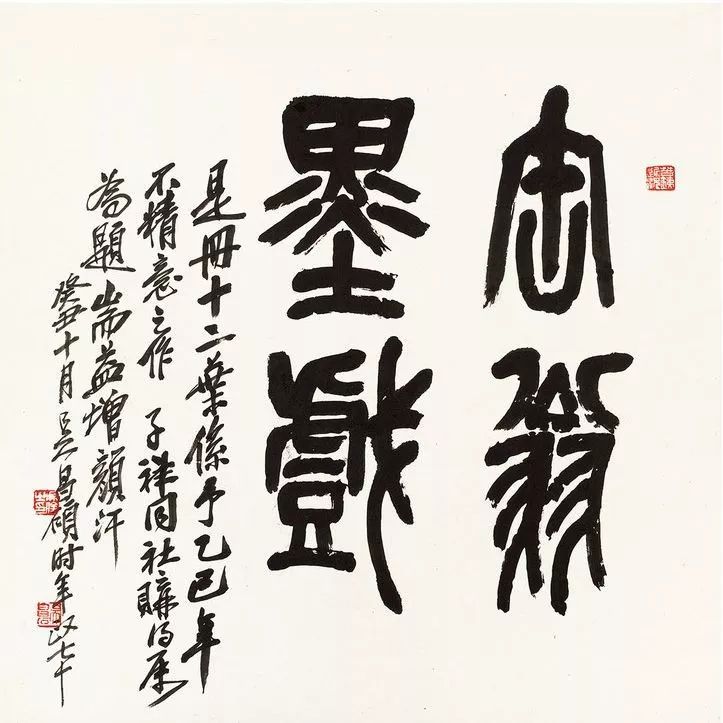 缶翁
墨戲
是冊十二葉係予乙巳年
不精意之作 子祥同社購得屬
為題耑益增顏汗
癸丑十月吳昌碩时年政七十